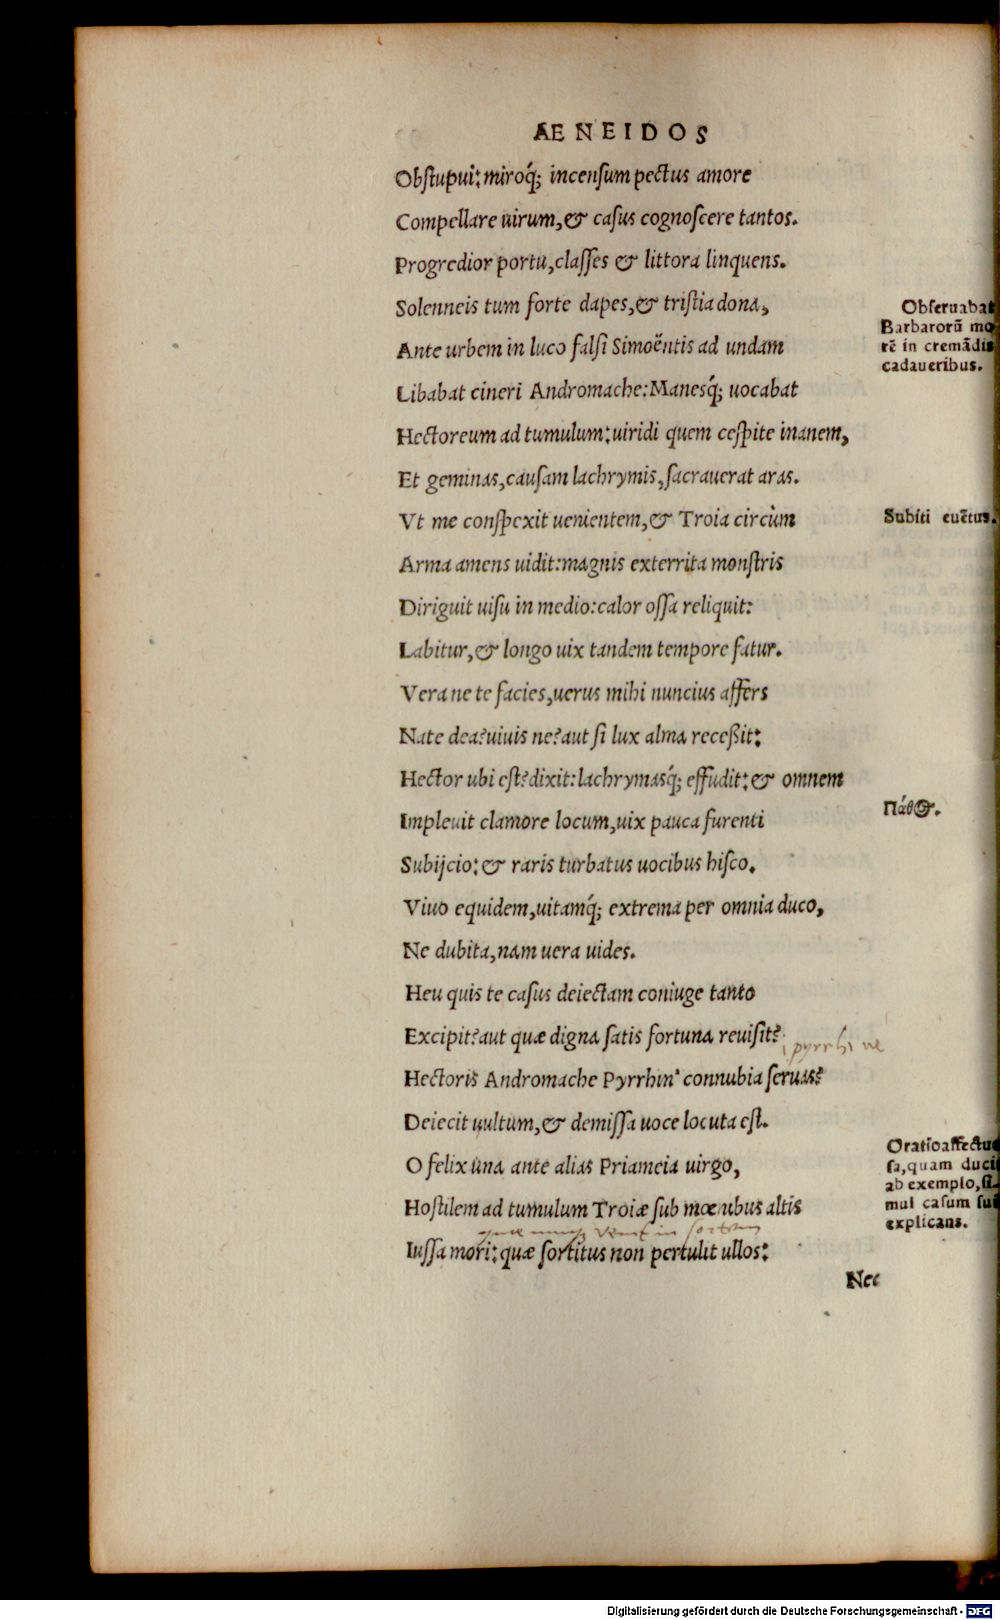 AENEIDOS
Obſtupui: miroq́; incenſum pectus amore
Compellare uirum, & caſus cognoſcere tantos.
Progredior portu, claſſes & littora linquens.
Solenneis tum forte dapes, & triſtia dona,
Ante urbem in luco falſi Simoëntis ad undam
Libabat cineri Andromache: Manesq́; uocabat
Hectoreum ad tumulum: uiridi quem ceſpite inanem,
Et geminas, cauſam lachrymis, ſacrauerat aras.
Vt me conſpexit uenientem, & Troia circùm
Arma amens uidit: magnis exterrita monſtris
Diriguit uiſu in medio: calor oſſa reliquit:
Labitur, & longo uix tandem tempore fatur.
Vera ne te facies, uerus mihi nuncius affers
Nate dea? uiuis ne? aut ſi lux alma receßit:
Hector ubi eſt? dixit: lachrymasq́; effudit: & omnem
Impleuit clamore locum, uix pauca furenti
Subijcio: & raris turbatus uocibus hiſco.
Viuo equidem, uitamq́; extrema per omnia duco,
Ne dubita, nam uera uides.
Heu quis te caſus deiectam coniuge tanto
Excipit? aut quæ digna ſatis fortuna reuiſit?
pyrrhi ne
Hectoris Andromache Pyrrhin' connubia ſeruas?
Deiecit uultum, & demiſſa uoce locuta eſt.
O felix una ante alias Priameia uirgo,
Hoſtilem ad tumulum Troiæ ſub mœnibus altis
Iuſſa mori: quæ ſortitus non pertulit ullos:
Nec
Obſeruabat
Barbarorū mo
rē in cremādis
cadaueribus.
Subiti euētus.
Πάθος.
Oratio affectuo
ſa, quam ducit
ab exemplo, ſi-
mul caſum ſuū
explicans.
Digitalisierung gefördert durch die Deutsche Forschungsgemeinschaft - DFG